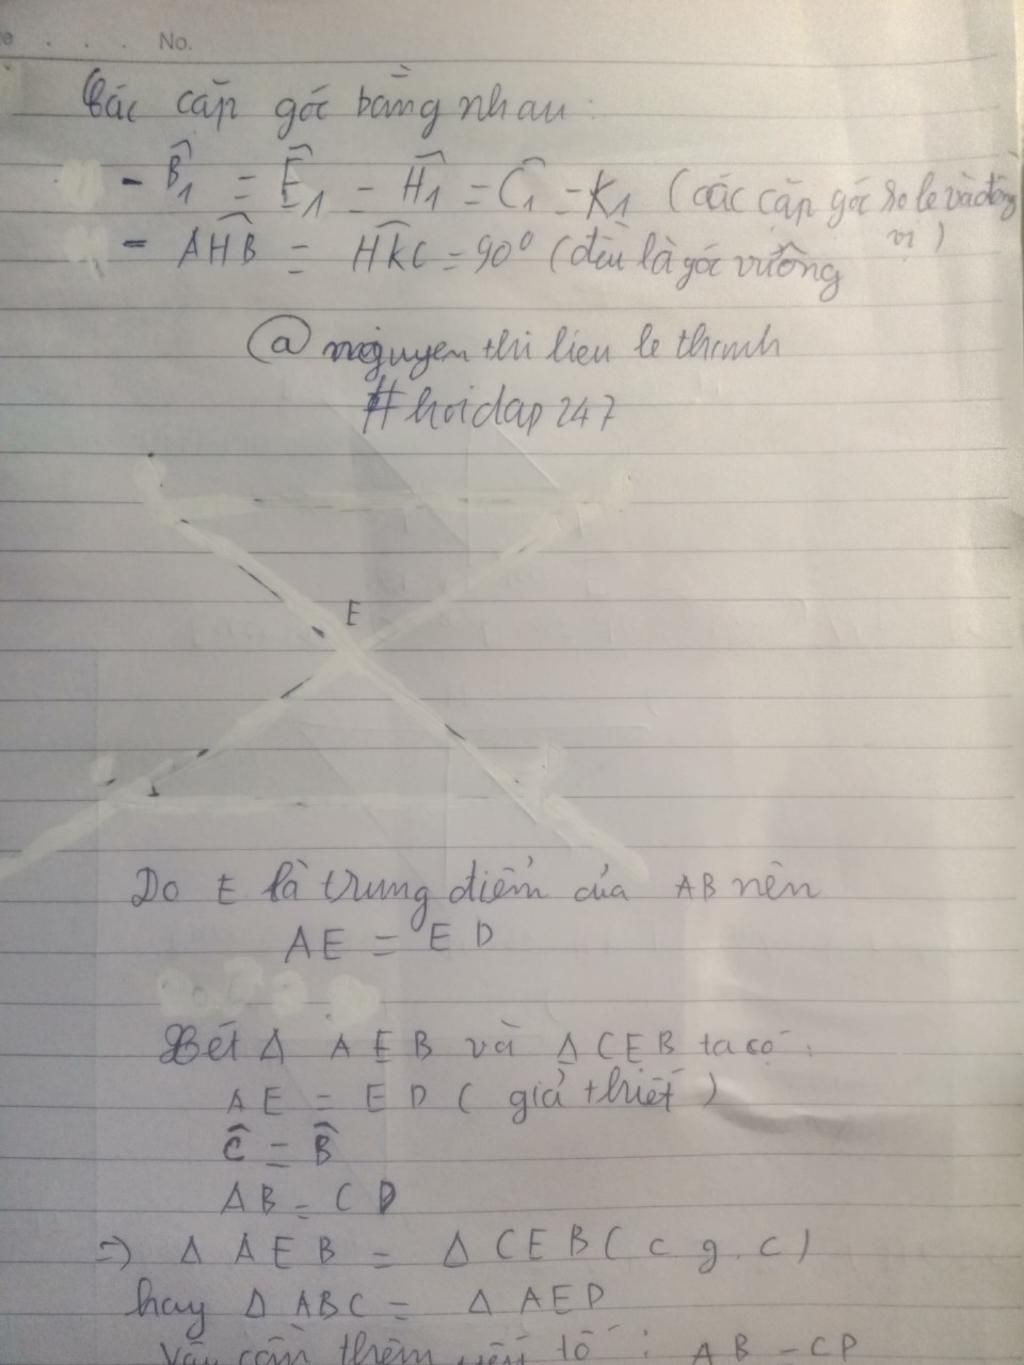 No.
Các cặp góc bằng nhau:
- B̂1 = Ê1 = Ĥ1 = Ĉ1 = K1 (các cặp góc so le và đồng vị)
- AHB = HKC = 90° (đều là góc vuông
@nguyen thi lieu le thanh
#hoidap247
E
Do E là trung điểm của AB nên
AE = ED
Xét Δ AEB và Δ CEB ta có:
AE = ED (giả thiết)
Ĉ = B̂
AB = CD
=> Δ AEB = Δ CEB (c g.c)
hay Δ ABC = Δ AED
Vậy cần thêm yếu tố: AB = CD